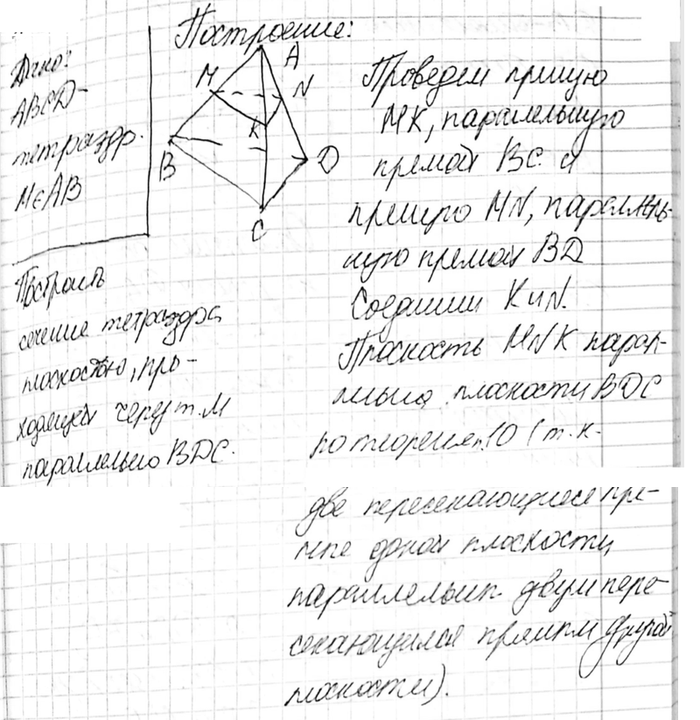 Построение:
Дано:
ABCD-
тетраэдр.
M∈AB
Построить
сечение тетраэдра
плоскостью, про-
ходящей через т. M
параллельно BDC.
A
M
N
K
B
D
C
Проведем прямую
MK, параллельную
прямой BC и
прямую MN, параллель-
ную прямой BD
Соединим K и N.
Плоскость MNK парал-
лельна плоскости BDC
по теореме п.10 (т.к.
две пересекающиеся пря-
мые одной плоскости
параллельн. двум пере-
секающимся прямым другой
плоскости).